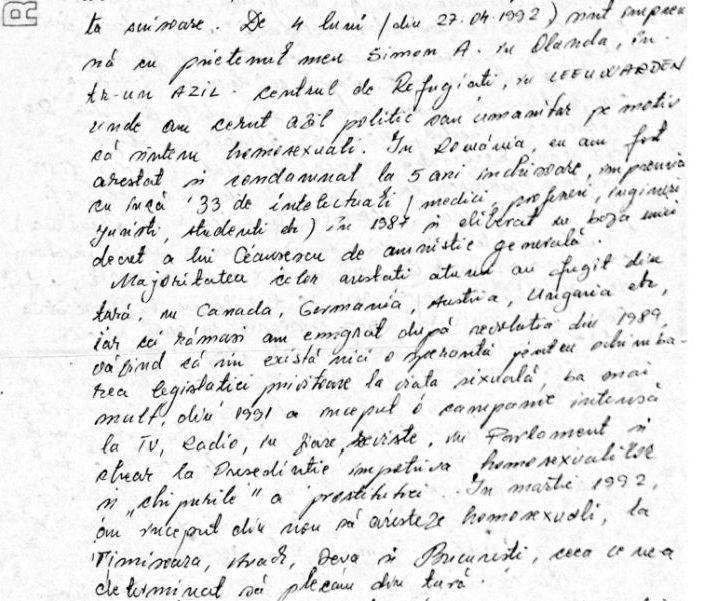 tă scrisoare. De 4 luni (din 27.04.1992) sînt împreu
nă cu prietenul meu Simon A. în Olanda, în
tr-un AZIL - centrul de Refugiați, în LEEUWARDEN
unde am cerut azil politic sau umanitar pe motiv
că sîntem homosexuali. În România, eu am fost
arestat și condamnat la 5 ani închisoare, împreună
cu încă 33 de intelectuali (medici, profesori, ingineri
juriști, studenți etc) în 1987 și eliberat în baza unui
decret a lui Ceaușescu de amnistie generală.
Majoritatea celor arestați atunci au fugit din
țară, în Canada, Germania, Austria, Ungaria etc,
iar cei rămași am emigrat după revoluția din 1989,
văzînd că nu există nici o speranță pentru schimba-
rea legislației privitoare la viața sexuală, ba mai
mult, din 1991 a început o campanie intensă
la TV, Radio, în ziare, reviste, în Parlament și
chiar la Președinție împotriva homosexualilor
și „chipurile" a prostituției. În martie 1992,
au început din nou să aresteze homosexuali, la
Timișoara, Arad, Deva și București, ceea ce ne-a
determinat să plecăm din țară.